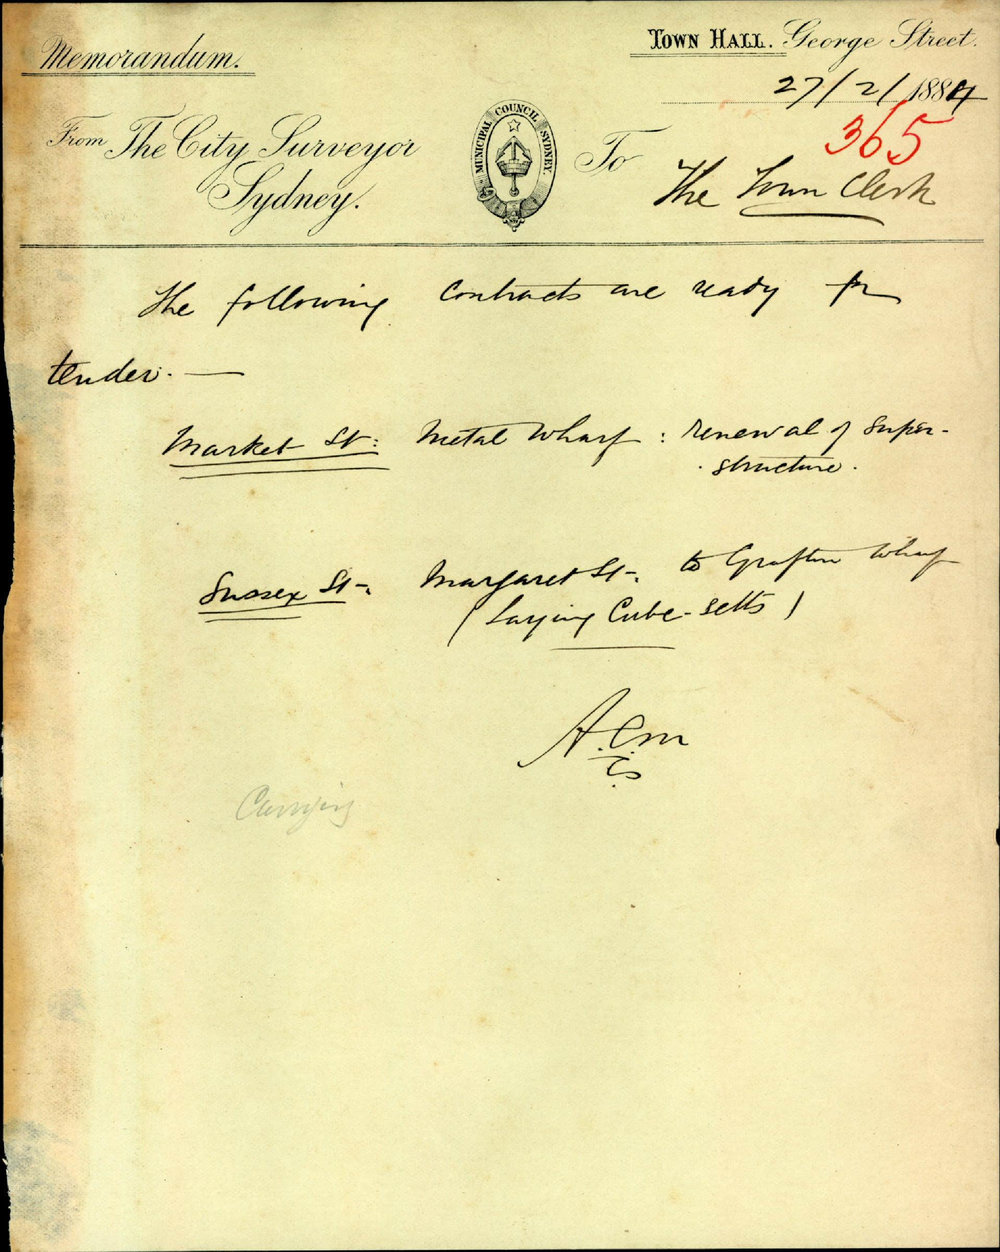 Memorandum.
TOWN HALL. George Street.
27/2/1884
365
From The City Surveyor
Sydney.
MUNICIPAL COUNCIL SYDNEY.
To
The Town Clerk
The following contracts are ready for
tender. —
Market St: Metal Wharf : renewal of super-
structure.
Sussex St. Margaret St. to Grafton Wharf
(Laying Cube-setts)
A.C.M
C.S.
Carrying